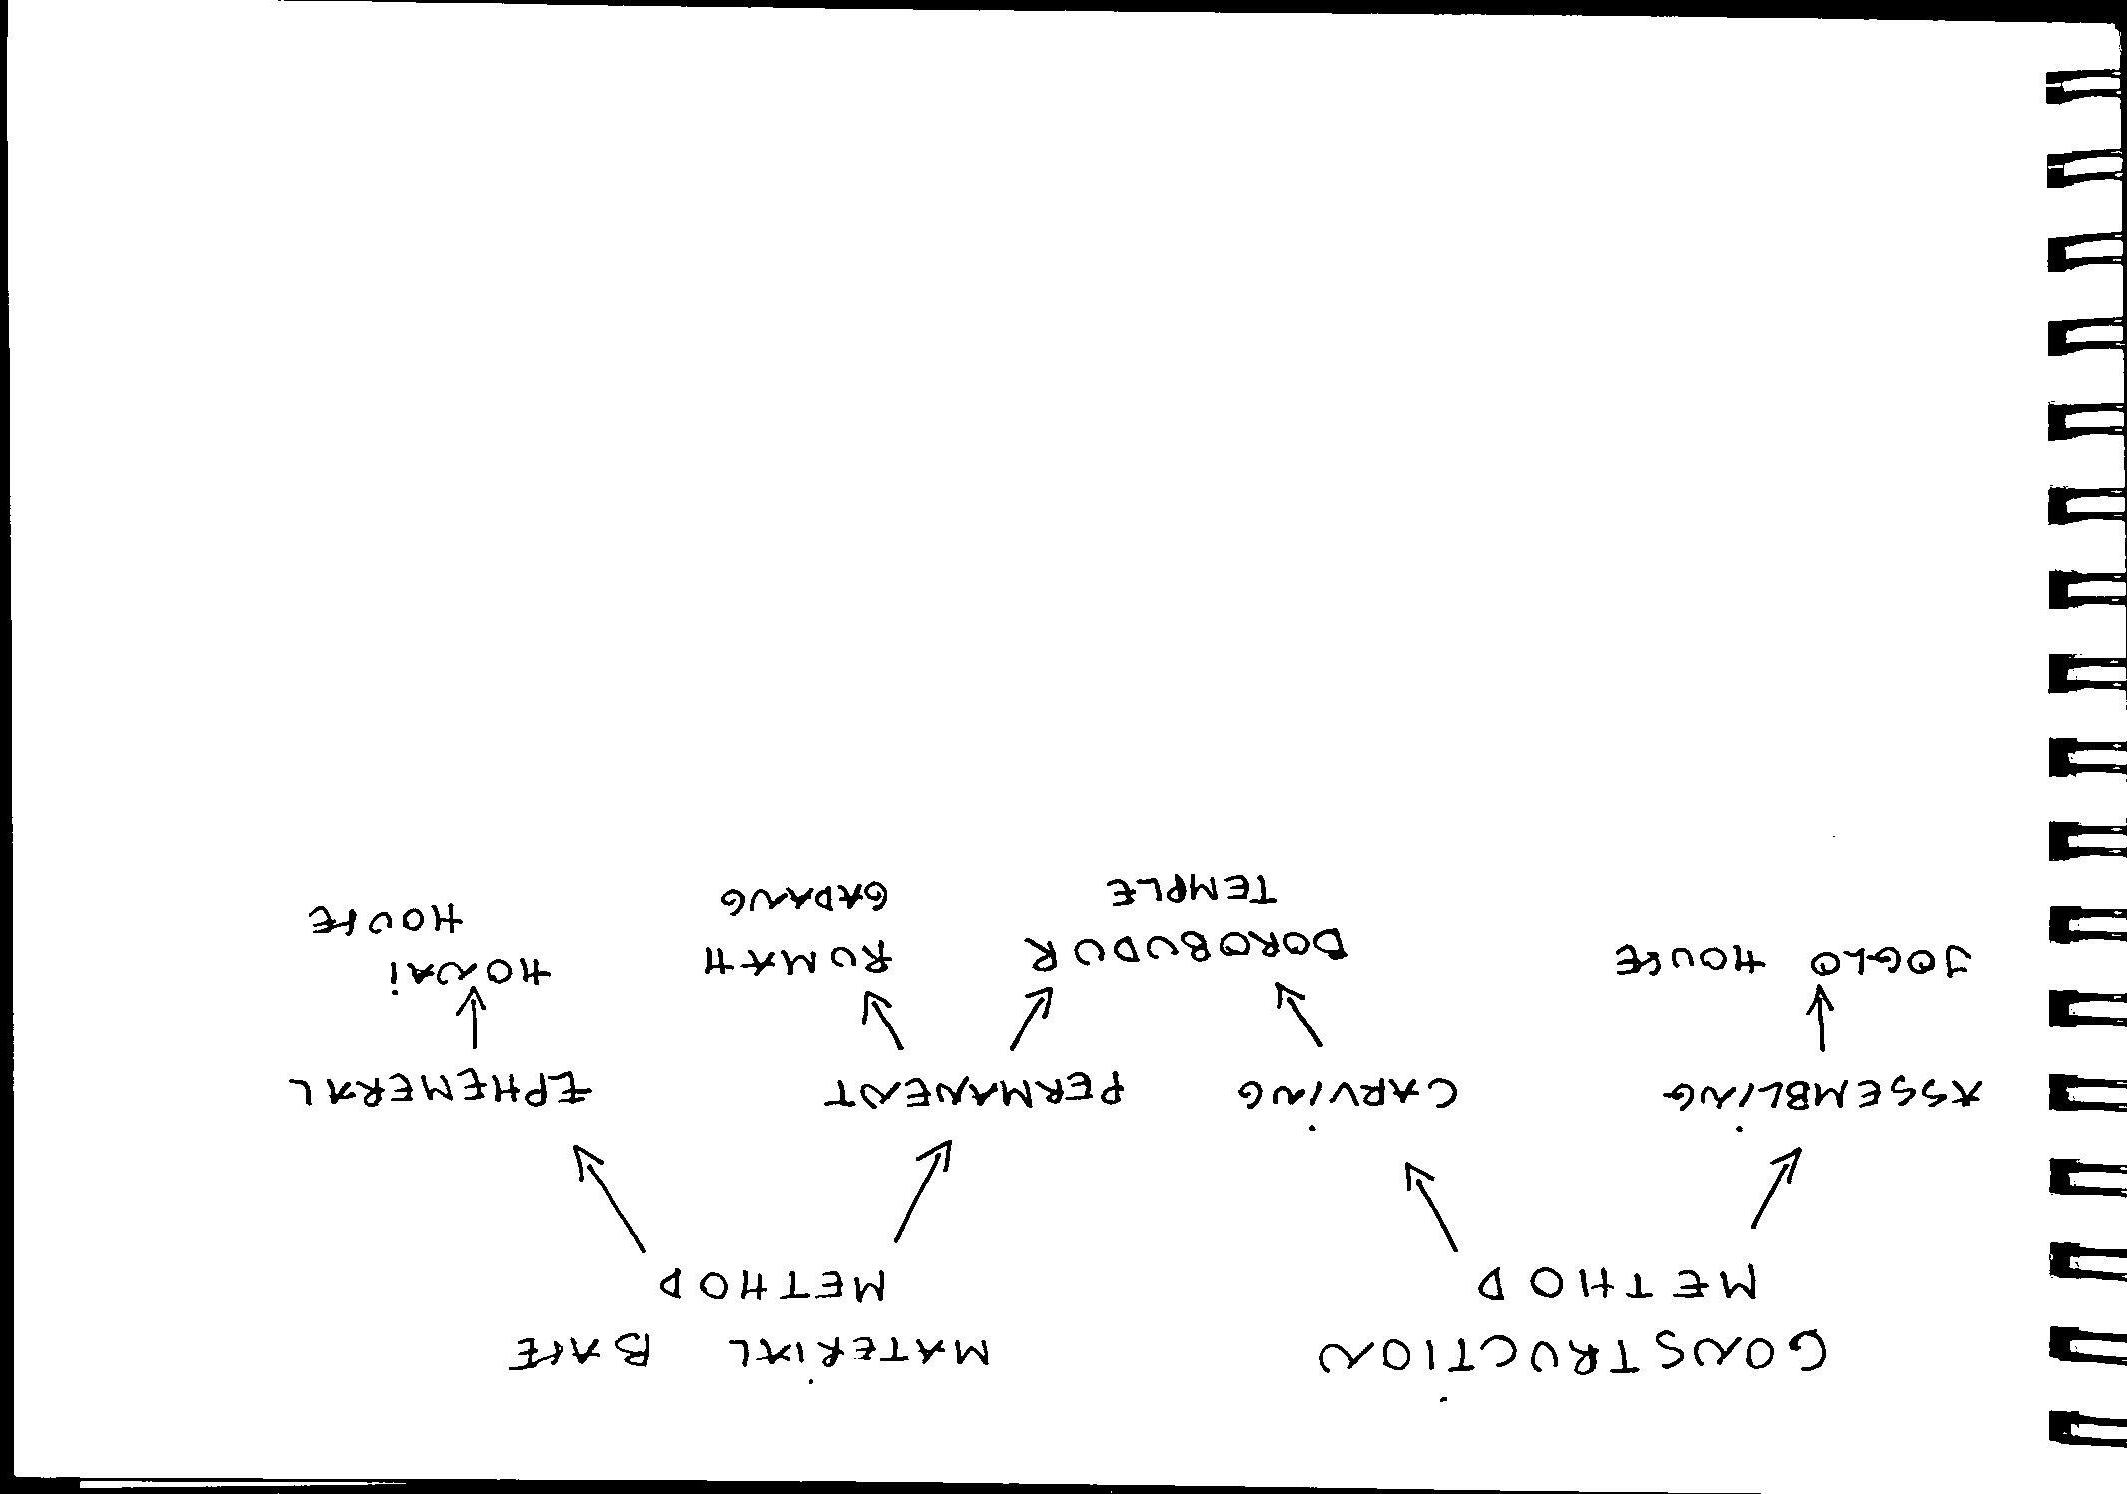 CONSTRUCTION
METHOD
MATERIAL BASE
METHOD
ASSEMBLING
CARVING
PERMANENT
EPHEMERAL
JOGLO HOUSE
BOROBUDUR
TEMPLE
RUMAH
GADANG
HONAI
HOUSE